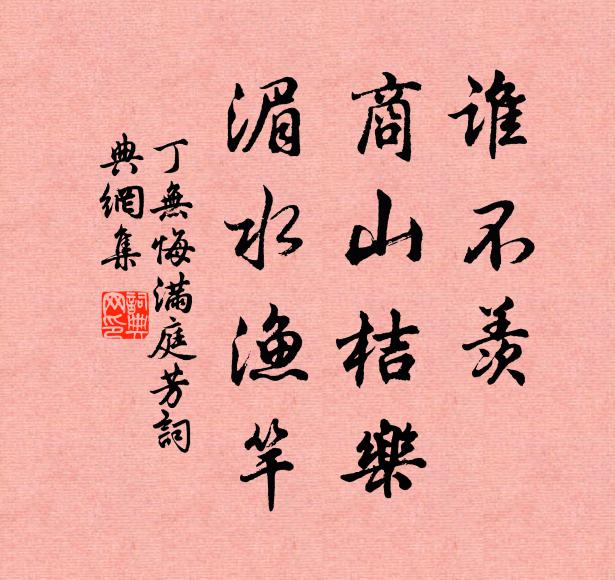 谁不羡
商山桔樂
湄水渔竿
丁無悔滿庭芳詞
典網集
詞典網印